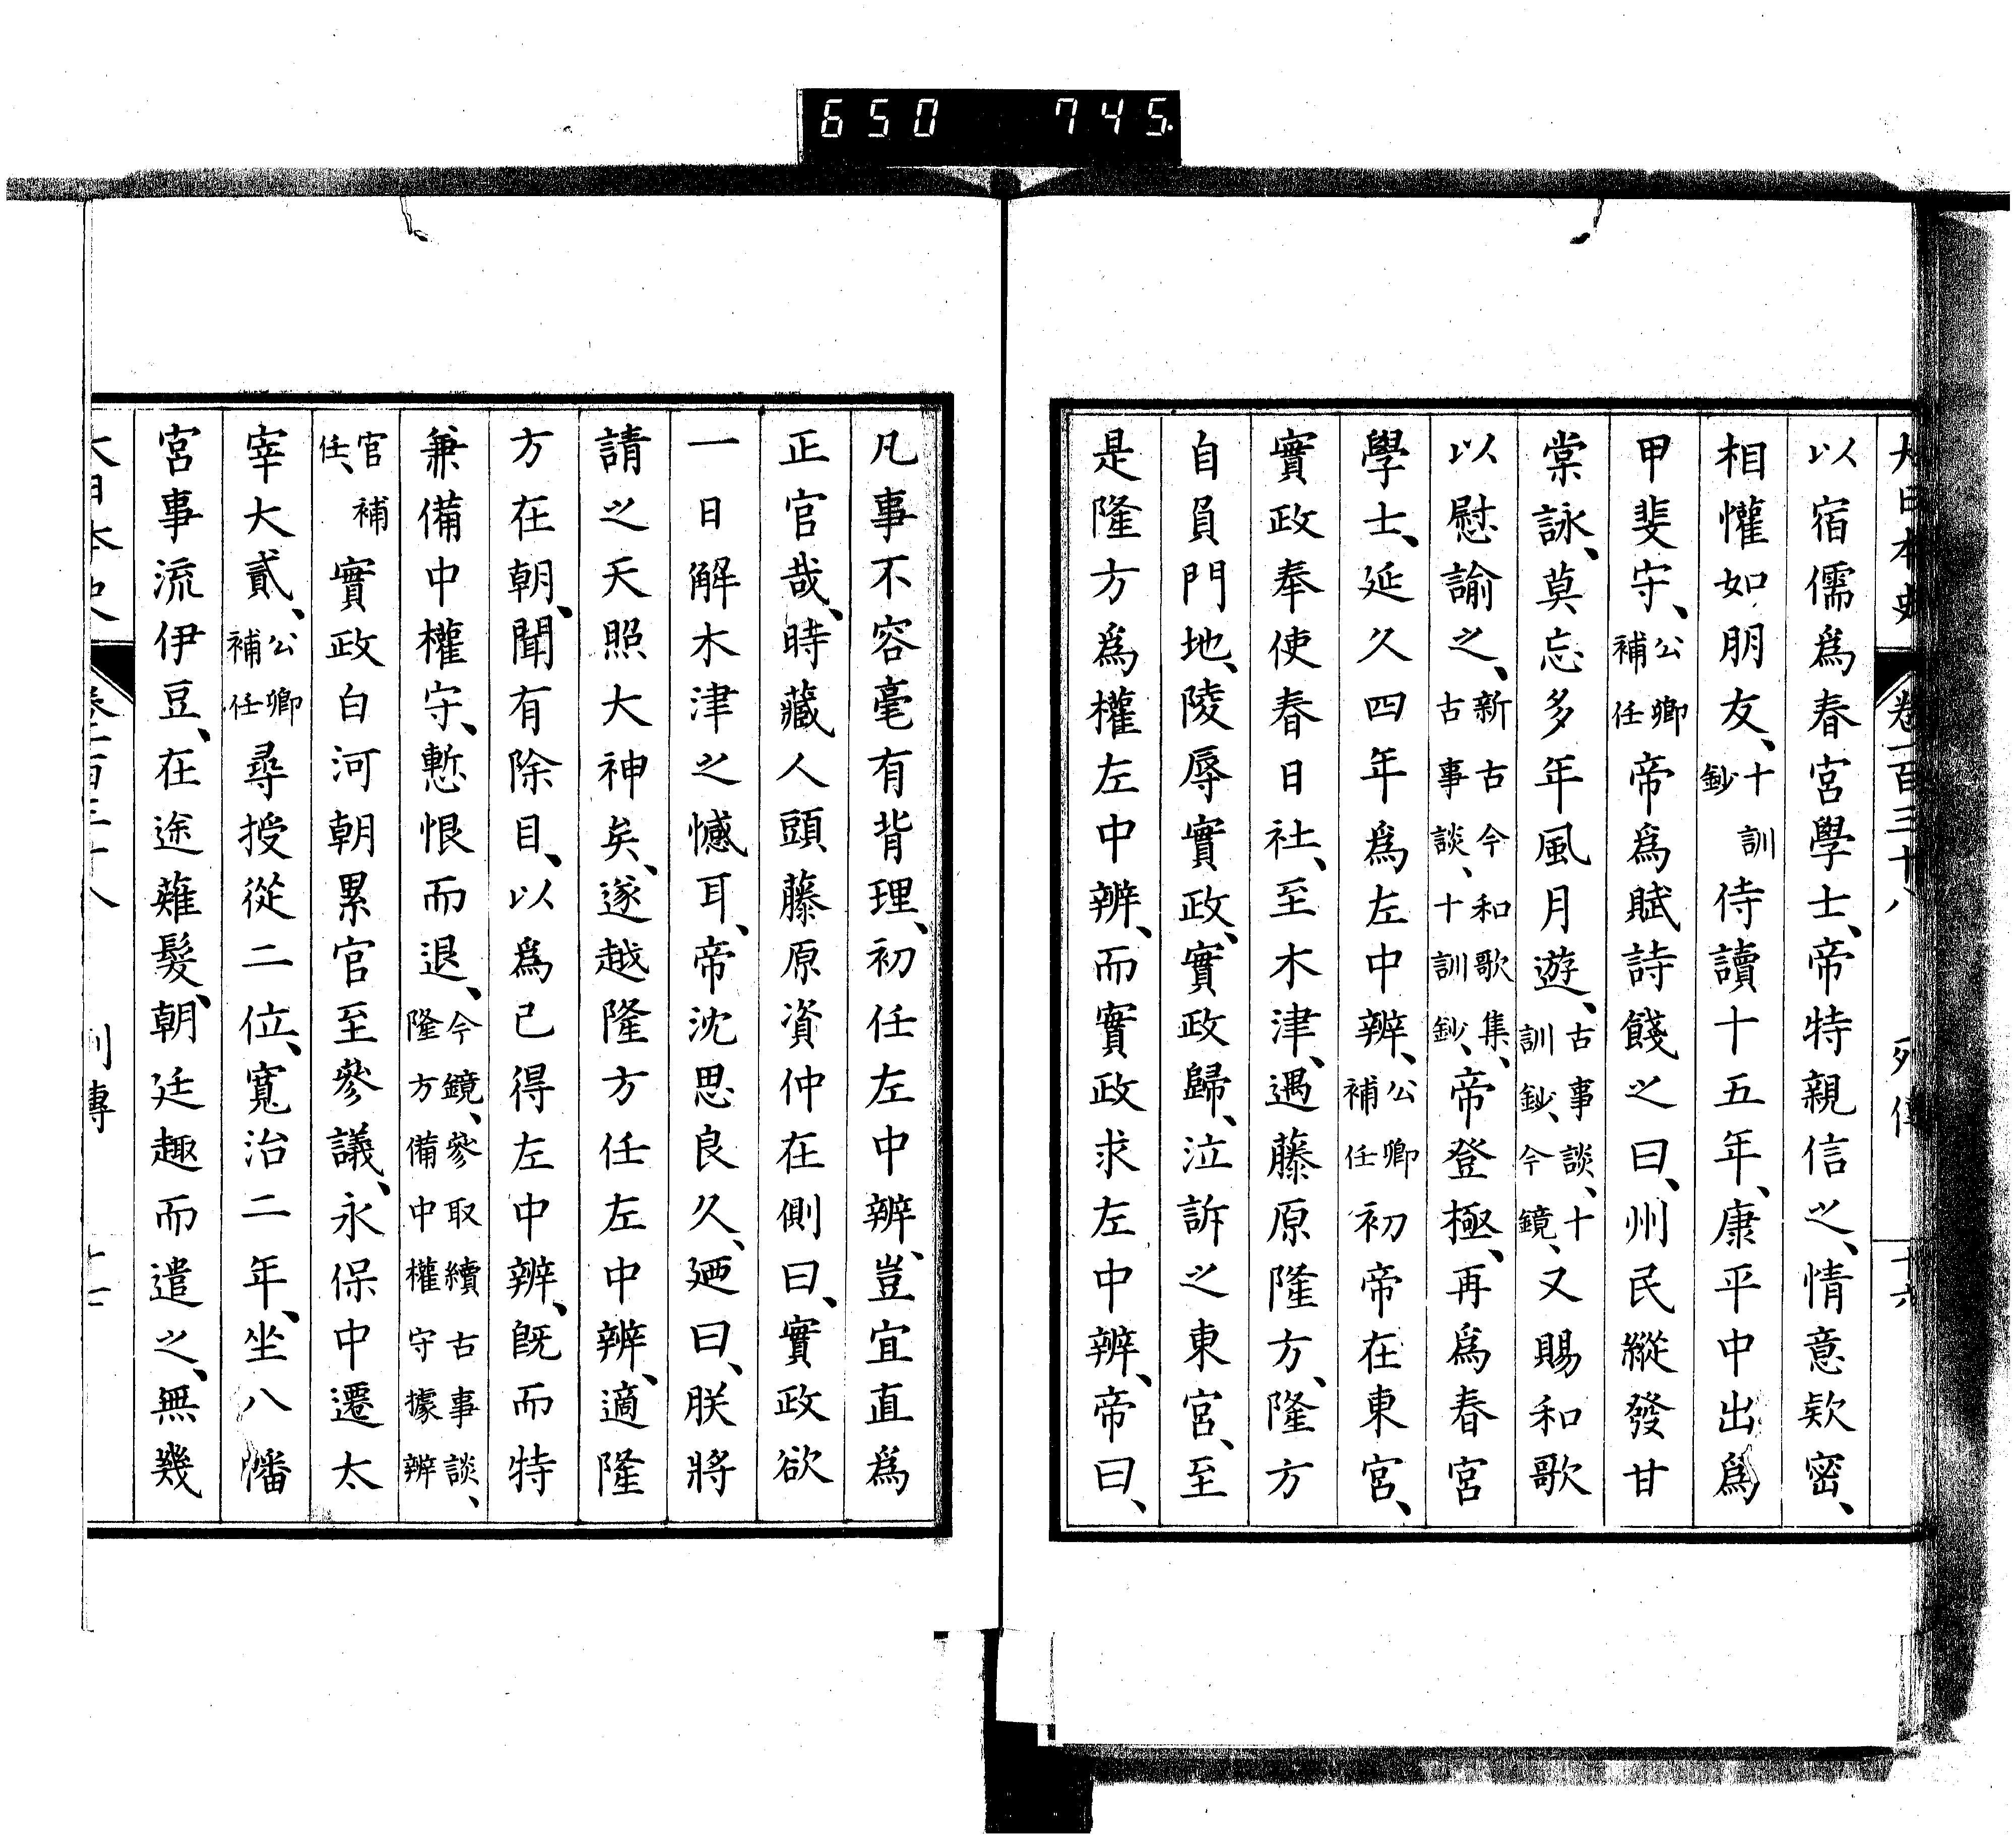 650 745.
大日本史 卷一百三十八 列傳 十六
以宿儒爲春宮學士、帝特親信之、情意欵密、
相懽如朋友、十訓鈔侍讀十五年、康平中出爲
甲斐守、公卿補任帝爲賦詩餞之曰、州民縱發甘
棠詠、莫忘多年風月遊、古事談、十訓鈔、今鏡、又賜和歌
以慰諭之、新古今和歌集、古事談、十訓鈔、帝登極、再爲春宮
學士、延久四年爲左中辨、公卿補任初帝在東宮、
實政奉使春日社、至木津、遇藤原隆方、隆方
自負門地、陵辱實政、實政歸、泣訴之東宮、至
是隆方爲權左中辨、而實政求左中辨、帝曰、
凡事不容毫有背理、初任左中辨、豈宜直爲
正官哉、時藏人頭藤原資仲在側曰、實政欲
一日解木津之憾耳、帝沈思良久、廼曰、朕將
請之天照大神矣、遂越隆方任左中辨、適隆
方在朝、聞有除目、以爲已得左中辨、旣而特
兼備中權守、慙恨而退、今鏡、參取續古事談、隆方備中權守據辨
官補任、實政白河朝累官至參議、永保中遷太
宰大貳、公卿補任尋授從二位、寬治二年、坐八幡
宮事流伊豆、在途薙髮、朝廷趣而遣之、無幾
大日本史 卷一百三十八 列傳 十七